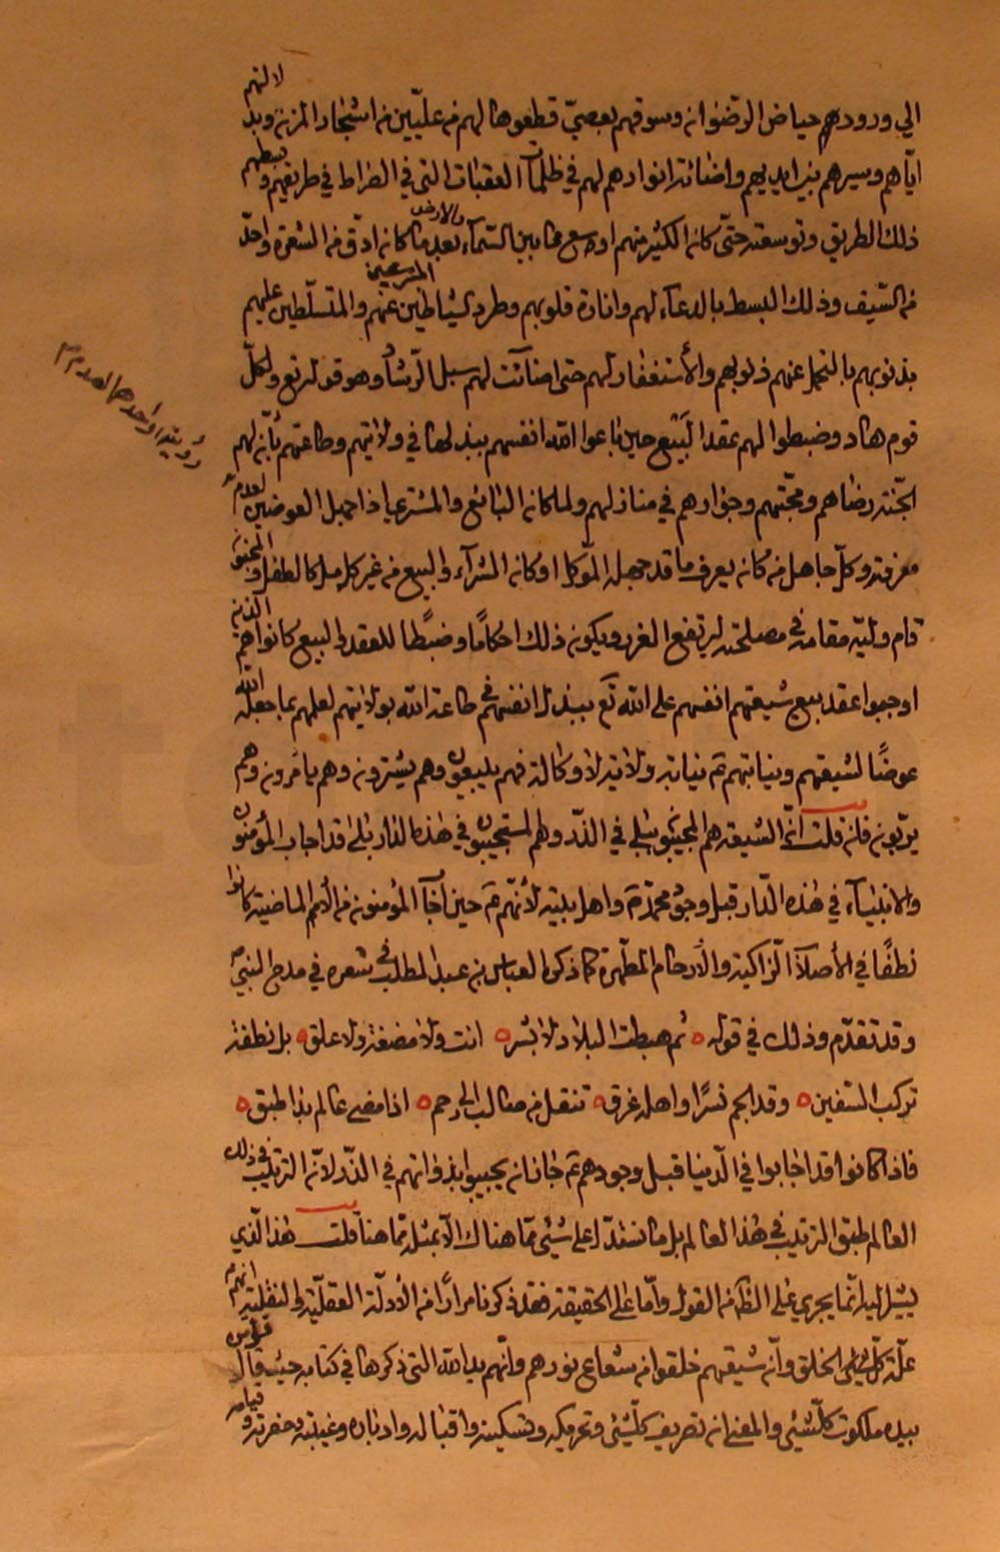 الي ورودهم حياض الرّضوان وسوقهم بعصيّ قطعوها لهم من علّيّين من اشجار المزن وبد لالتهم
ايّاهم وسيرهم بين ايديهم واضائة انوارهم لهم في ظلمات العقبات التى في الصّراط في طريقهم و ببسطهم
ذلك الطريق وتوسعته حتّى كان الكثير منهم اوسع مما بين السّمآء والارض بعد ما كان ادقّ من الشعرة واحدّ
من السّيف وذلك البسط بالدعآء لهم وانارة قلوبهم وطرد الشياطين المسرعين عنهم والمتسلّطين عليهم
بذنوبهم بالتحمل عنهم ذنوبهم والأستغفار لهم حتى اضائت لهم سبل الرّشاد وهو قوله تع ولكلّ
قوم هاد وضبطوا لهم عقد البَيْع حين باعوا اللّه انفسهم ببذلها في ولايتهم وطاعتهم بأنّ لهم
الجّنة رضاهم ومحبّتهم وجوارهم في منازلهم ولما كان البائع والمشتري اذا جهل العوضين لعدم
معرفته وكلّ جاهل من كان يعرف ما قد جهله الموكل او كان الشرآء والبيع من غير كامل كالطفل والمجنون
قام وليّه مقامه في مصلحته ليرتفع الغرر ويكون ذلك احكامًا وضبطًا للعقد والبيع كانوا هم الذين
اوجبوا عقد بيع شيعتهم انفسهم على اللّه تع ببذل انفسهم في طاعة اللّه بولايتهم لعلمهم بما جعله اللّه
عوضًا لشيعتهم ونيابتهم عم نيابة ولاية لا وكالة فهم يبيعون وهم يشترون وهم يامرون وهم
يربّون فان قلت انّ الشيعة هم المجيبون ببلى في الذّر وهم المستجيبون في هذه الدار بلى قد اجاب المؤمنون
والانبيآء في هذه الدّار قبل وجود محمّد صم واهل بيته لأنّهم عم حين اجاب المؤمنون من الأمم الماضية كانوا
نطفًا في الأصلاب الزّاكية والأرحام المطهّرة كما ذكر العباس بن عبد المطلب في شعره في مدح النبيّ ص
وقد تقدّم وذلك في قوله ثم هبطت البلاد لا بشر انت ولا مضغة ولا علق بل نطفة
تركب السّفين وقد الجم نسرًا واهله غرق تنقل من صالب الى رحم اذا مضى عالم بدا طبق
فاذا كانوا قد اجابوا في الدّنيا قبل وجودهم عم جاز ان يجيبوا بذواتهم في الذّر لانّ الترتيب في ذلك
العالم طبق الترتيب في هذا العالم بل ما نستدلّ على شئ ممّا هناك الّا بمثله ممّا هنا قلت هذا الّذي
يشير اليه انّما يجري على الظّ من القول وامّا على الحقيقة فقد ذكرنا مرارًا من الأدلّة العقليّة والنقليّة انّهم عم
علّة كلّ شئ من الخلق وانّ شيعتهم خلقوا من شعاع نورهم وانّهم يد اللّه التى ذكرها في كتابه حيث قال
بيده ملكوت كلّ شئ والمعنى ان تصريف كلّ شئ وتحريكه وتسكينه واقباله وادباره وغيبته وحضرته و قيامه